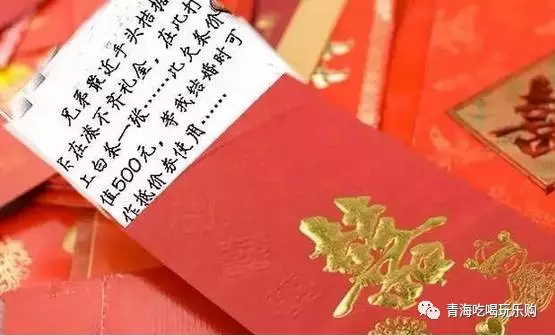 兄弟最近手头拮据
实在凑不齐礼金，在此打
上白条一张……此欠条价
值500元，等我结婚时可
作抵价券使用……
囍
青海吃喝玩乐购